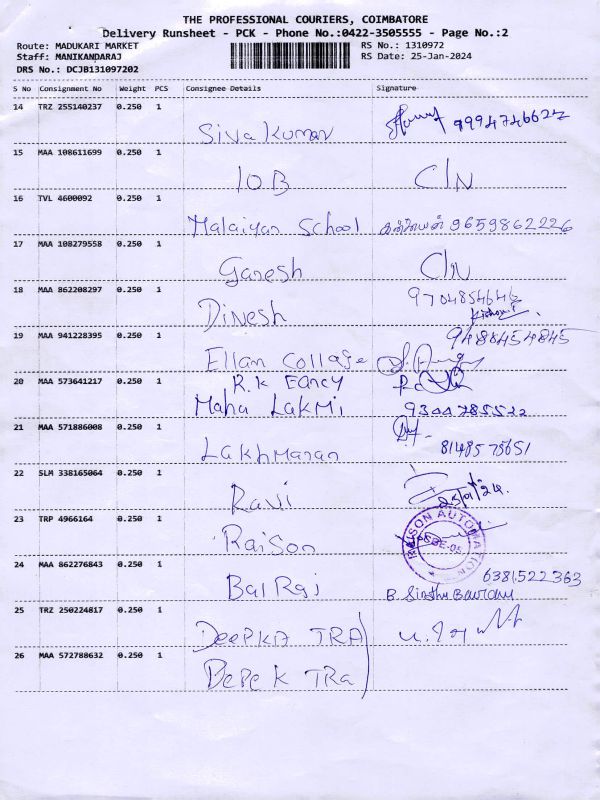 THE PROFESSIONAL COURIERS, COIMBATORE
Delivery Runsheet - PCK - Phone No.:0422-3505555 - Page No.:2
Route: MADUKARI MARKET RS No.: 1310972
Staff: MANIKANDARAJ RS Date: 25-Jan-2024
DRS No.: DCJB131097202
S No Consignment No Weight PCS Consignee Details Signature
14 TRZ 255140237 0.250 1
Siva kumar 9994746622
15 MAA 108611699 0.250 1
IOB C/N
16 TVL 4600092 0.250 1
Malaiyan School 9659862226
17 MAA 108279558 0.250 1
Ganesh C/N
18 MAA 862208297 0.250 1 9704854646
Dinesh
19 MAA 941228395 0.250 1 9488454845
Ellan Collage
20 MAA 573641217 0.250 1 R.K Fancy
Maha Lakmi
21 MAA 571886008 0.250 1
Lakhmanan 8148575651
22 SLM 338165064 0.250 1
Ravi 25/01/24.
23 TRP 4966164 0.250 1 RAISON AUTOMATION
Raison
24 MAA 862276843 0.250 1 6381522363
Bal Raj B.
25 TRZ 250224817 0.250 1
Deepka TRA
26 MAA 572788632 0.250 1
Depek TRa